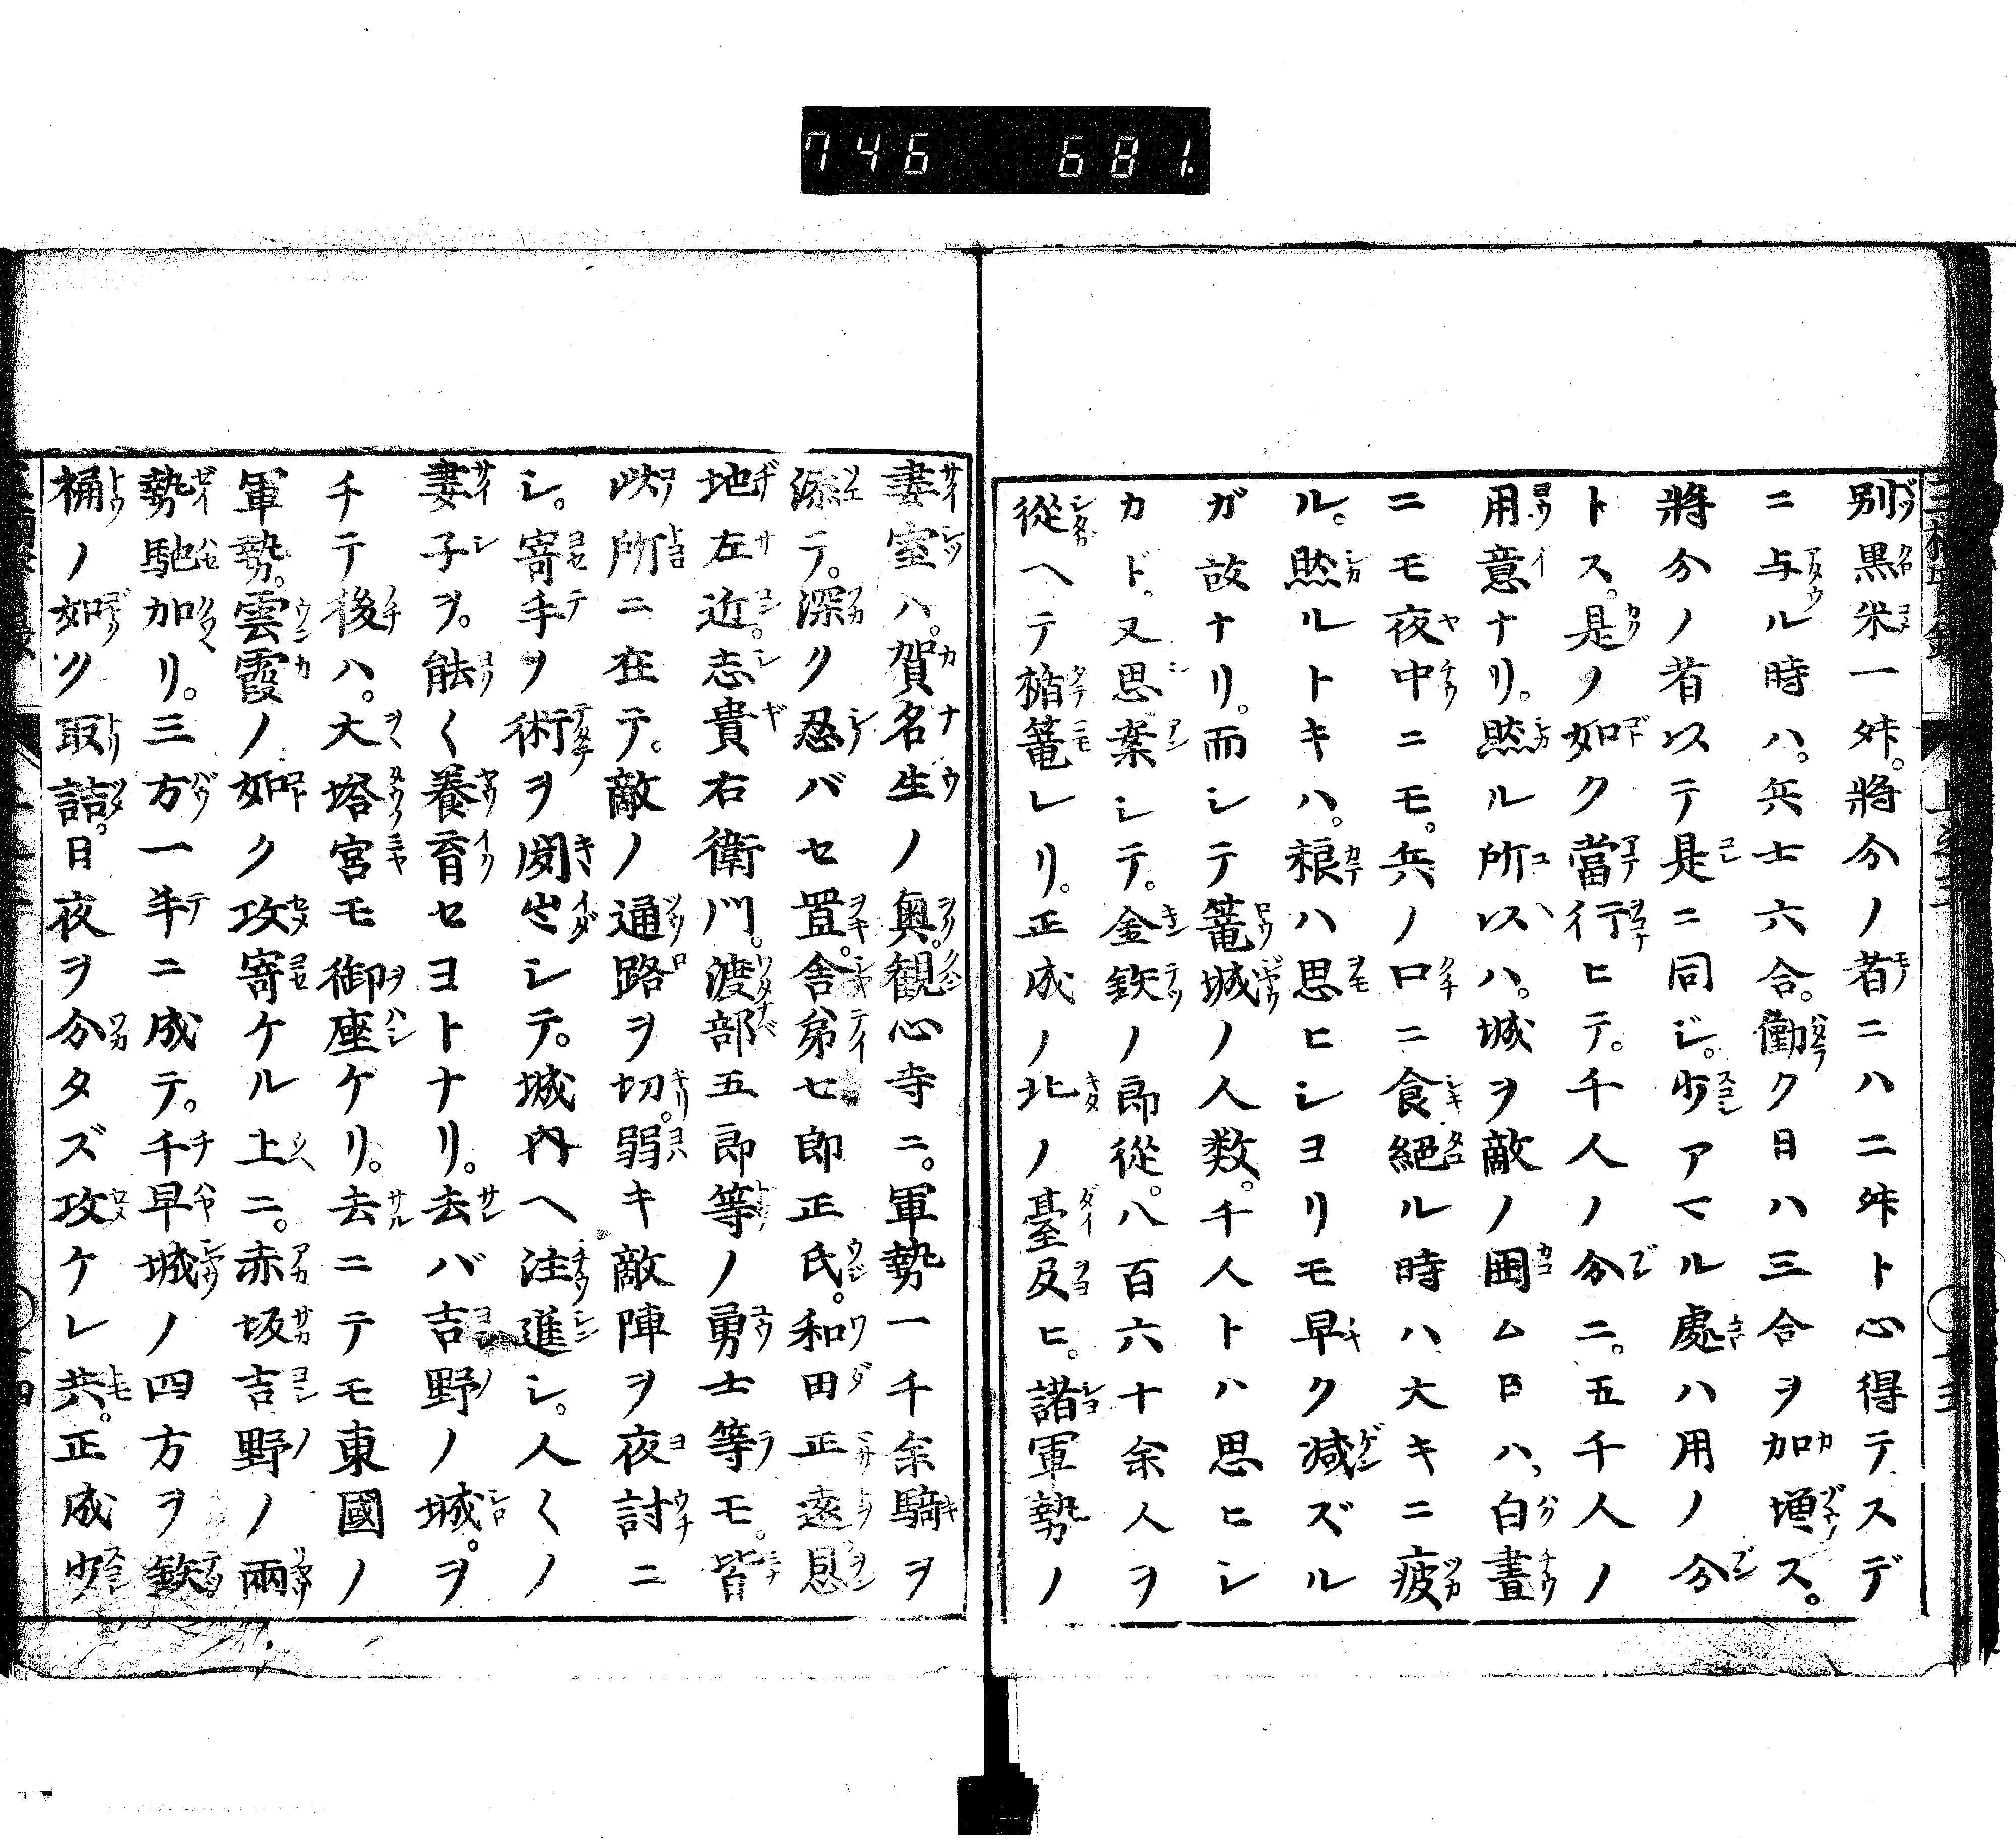 746 681.
別黒米一舛。將分ノ者ニハ二舛ト心得テスデ
ニ与ル時ハ。兵士六合。働ク日ハ三合ヲ加増ス。
將分ノ者以テ是ニ同ジ。少アマル處ハ用ノ分
トス。是ノ如ク當行ヒテ。千人ノ分ニ。五千人ノ
用意ナリ。然ル所以ハ。城ヲ敵ノ囲ム日ハ。白晝
ニモ夜中ニモ。兵ノ口ニ食絶ル時ハ大キニ疲
ル。然ルトキハ。粮ハ思ヒシヨリモ早ク减ズル
ガ故ナリ。而シテ篭城ノ人数。千人トハ思ヒシ
カド。又思案シテ。金鉄ノ郎從。八百六十余人ヲ
從ヘテ楯篭レリ。正成ノ北ノ臺及ヒ。諸軍勢ノ
妻室ハ。賀名生ノ奥。観心寺ニ。軍勢一千余騎ヲ
添テ。深ク忍バセ置。舎弟七郎正氏。和田正遠恩
地左近。志貴右衛門。渡部五郎等ノ勇士等モ。皆
此所ニ在テ。敵ノ通路ヲ切。弱キ敵陣ヲ夜討ニ
シ。寄手ノ術ヲ聞出シテ。城内ヘ注進シ。人〱ノ
妻子ヲ。能く養育セヨトナリ。去バ吉野ノ城。ヲ
チテ後ハ。大塔宮モ御座ケリ。去ニテモ東國ノ
軍勢。雲霞ノ如ク攻寄ケル上ニ。赤坂吉野ノ兩
勢馳加リ。三方一手ニ成テ。千早城ノ四方ヲ鉄
桶ノ如ク取詰。日夜ヲ分タズ攻ケレ共。正成少